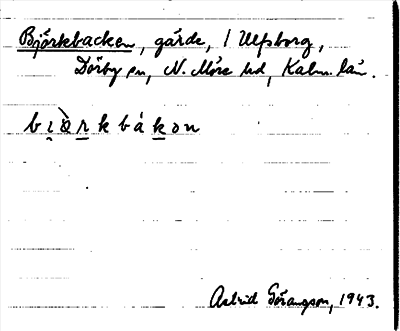 Björkbacken, gärde, / Ulfsborg,
Dörby sn, N. Möre hd, Kalm. län.
bi̯ò̱rkbák̠on
Astrid Göransson, 1943.